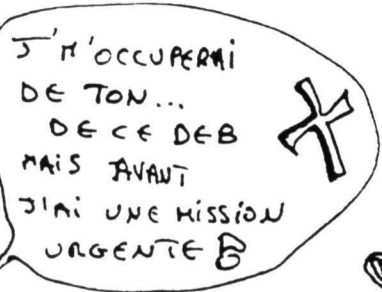 J'M'OCCUPERAI
DE TON...
DE CE DEB
MAIS AVANT
J'AI UNE MISSION
URGENTE